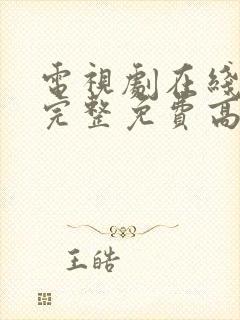 電視劇在綫
完整免費高
王皓